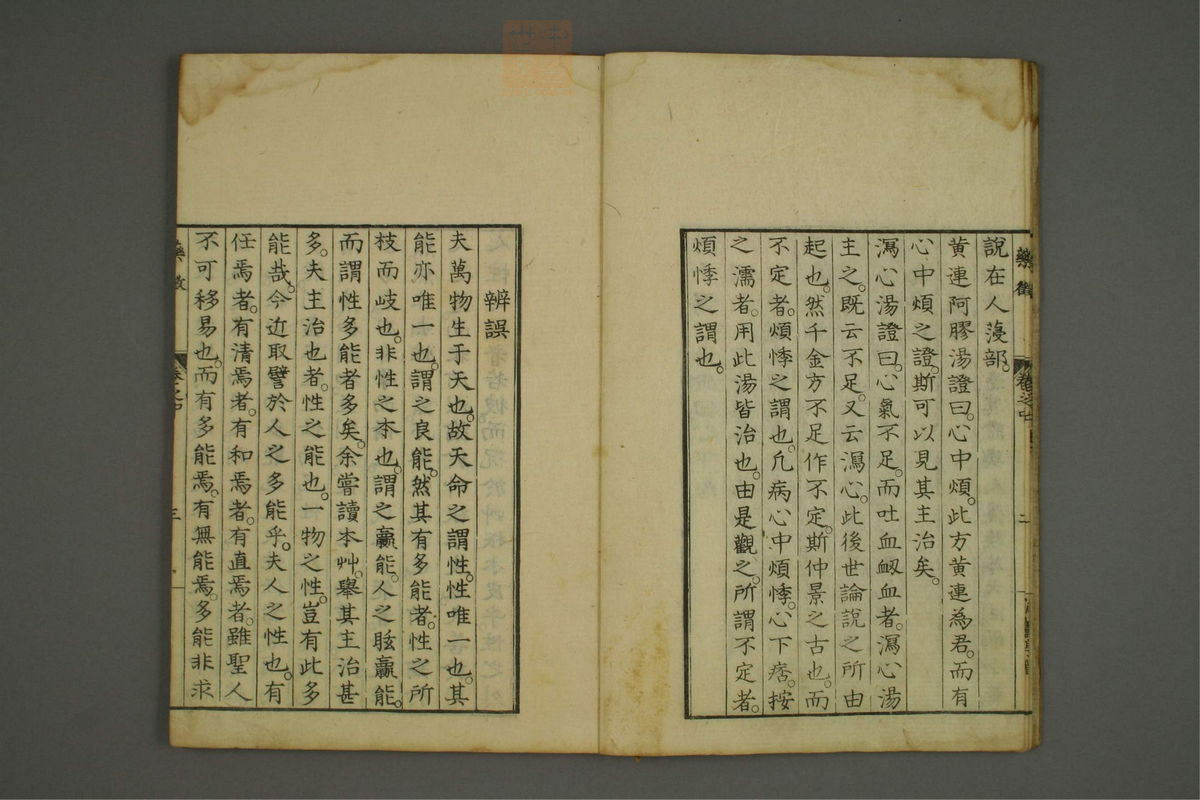 說在人葠部。
黃連阿膠湯證曰。心中煩。此方黃連為君。而有
心中煩之證。斯可以見其主治矣。
瀉心湯證曰。心氣不足。而吐血衂血者。瀉心湯
主之。既云不足。又云瀉心。此後世論說之所由
起也。然千金方不足作不定。斯仲景之古也。而
不定者。煩悸之謂也。凢病心中煩悸。心下痞。按
之濡者。用此湯皆治也。由是觀之。所謂不定者。
煩悸之謂也。
辨誤
夫萬物生于天也。故天命之謂性。性唯一也。其
能亦唯一也。謂之良能。然其有多能者。性之所
枝而岐也。非性之夲也。謂之贏能。人之眩贏能。
而謂性多能者多矣。余嘗讀夲艸。舉其主治甚
多。夫主治也者。性之能也。一物之性。豈有此多
能哉。今近取譬於人之多能乎。夫人之性也。有
任焉者。有清焉者。有和焉者。有直焉者。雖聖人
不可移易也。而有多能焉。有無能焉。多能非求